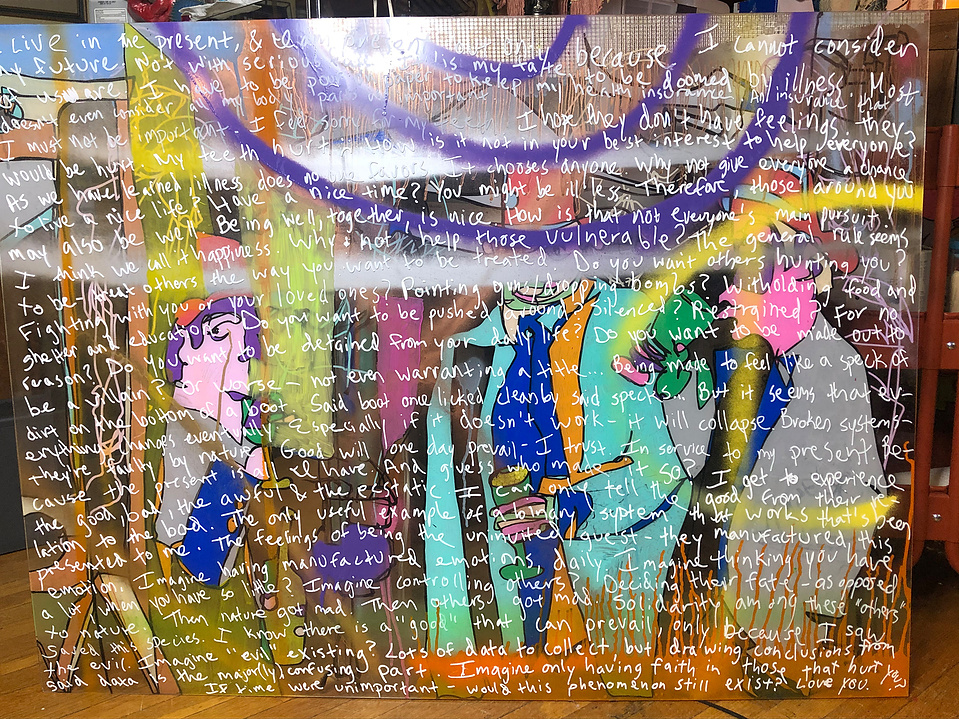 Live in the present, & only because I cannot consider
my future. Not with serious is my taste to be doomed by illness. Most
usual are. I have to be poor to keep my health insurance. An insurance that
doesn't even consider my body part important. I hope they don't have feelings - they
I must not be important - I feel sorry for my How is it not in your best interest to help everyone?
would be hurt. My teeth hurt. favors. It chooses anyone. Why not give everyone a chance
As we have learned, illness does no time? You might be ill less. Therefore, those around you
to live a nice life? Have a nice How is that not everyone's main pursuit?
may also be well. Being well, together is nice. The general rule seems
I think we call it happiness. Why not help those vulnerable? Do you want others hunting you?
to be - treat others the way you want to be treated. Witholding food and
Fighting with you or your loved ones? Pointing guns/dropping bombs? For no
shelter and education? Do you want to be pushed around? Silenced? Restrained? For no
reason? Do you want to be detained from your daily life? Do you want to be made out to
be a villain? Or worse - not even warranting a title... Being made to feel like a speck of
dirt on the bottom of a boot. Said boot once licked clean by said specks... But it seems that ev-
erything changes eventually - Especially if it doesn't work - it will collapse. Broken systems -
they're faulty by nature. Good will one day prevail - I trust. In service to my present be-
cause the present is all I have. And guess who made it so? I get to experience
the good, bad, the awful & the ecstatic. I can only tell the good from their re-
lation to the bad. The only useful example of a binary system that works that's been
presented to me. The feelings of being the uninvited guest - they manufactured this
emotion. Imagine having manufactured emotions daily. Imagine thinking you have
a lot when you have so little? Imagine controlling others? Deciding their fate - as opposed
to nature. Then nature got mad. Then others got mad. Solidarity among these "others"
Saved this species. I know there is a "good" that can prevail, only because I saw
the evil. Imagine "evil" existing? Lots of data to collect, but drawing conclusions from
said data is the major(ly) confusing part. Imagine only having faith in those that hurt you?
If time were unimportant - would this phenomenon still exist? Love you.